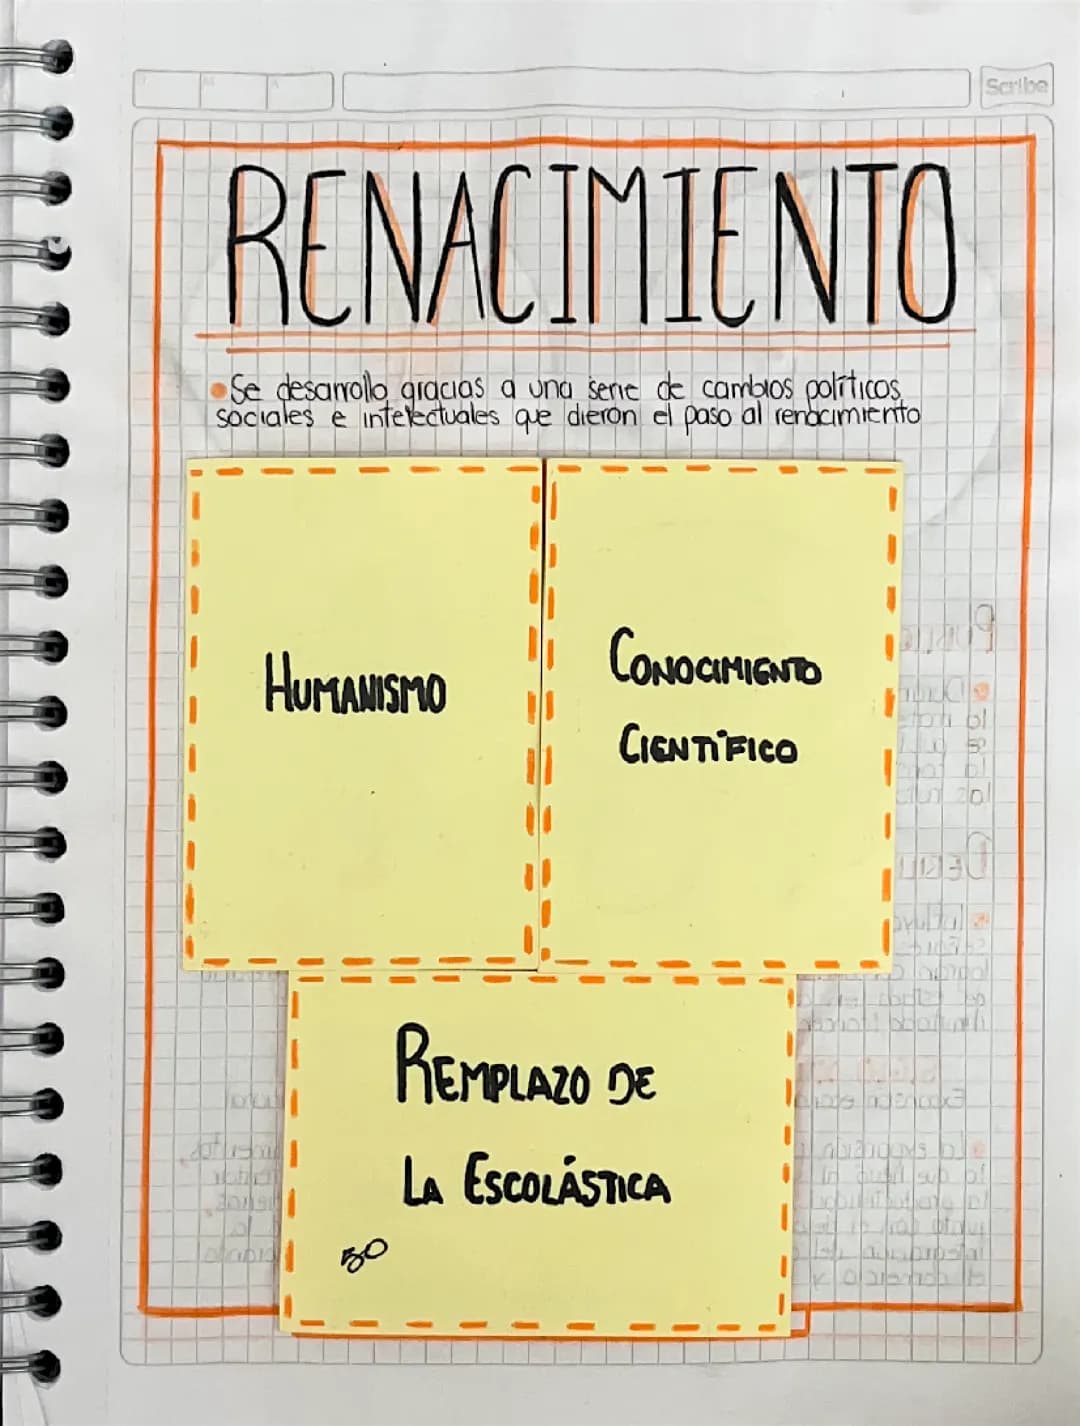 Scribe
RENACIMIENTO
• Se desarrollo gracias a una serie de cambios políticos,
sociales e intelectuales que dieron el paso al renacimiento
HUMANISMO
CONOCIMIENTO
CIENTÍFICO
REMPLAZO DE
LA ESCOLÁSTICA